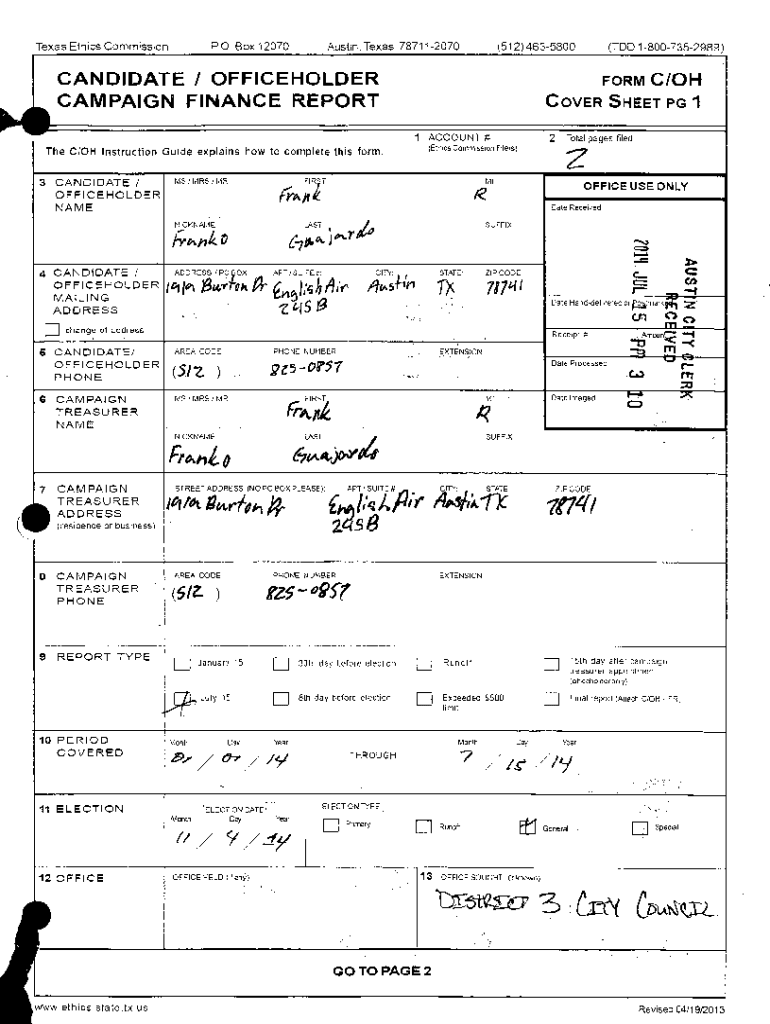 Texas Ethics Commission P.O. Box 12070 Austin, Texas 78711-2070 (512) 463-5800 (TDD 1-800-735-2989)
CANDIDATE / OFFICEHOLDER
CAMPAIGN FINANCE REPORT
FORM C/OH
COVER SHEET PG 1
The C/OH Instruction Guide explains how to complete this form.
1 ACCOUNT #
(Ethics Commission Filers)
2 Total pages filed
2
3 CANDIDATE / OFFICEHOLDER NAME
MS / MRS / MR FIRST MI
Frank R
NICKNAME LAST SUFFIX
Franko Guajardo
OFFICE USE ONLY
Date Received
AUSTIN CITY CLERK
RECEIVED
2014 JUL 15 PM 3 10
Date Hand-delivered or
Receipt # Amount
Date Processed
Date Imaged
4 CANDIDATE / OFFICEHOLDER MAILING ADDRESS
change of address
ADDRESS / PO BOX APT / SUITE #: CITY: STATE: ZIP CODE
Burton Dr English Air Austin TX 78741
245B
5 CANDIDATE/ OFFICEHOLDER PHONE
AREA CODE PHONE NUMBER EXTENSION
(512) 825-0857
6 CAMPAIGN TREASURER NAME
MS / MRS / MR FIRST MI
Frank R
NICKNAME LAST SUFFIX
Franko Guajardo
7 CAMPAIGN TREASURER ADDRESS
(residence or business)
STREET ADDRESS (NO PO BOX PLEASE); APT / SUITE # CITY; STATE ZIP CODE
Burton Dr English Air Austin TX 78741
245B
8 CAMPAIGN TREASURER PHONE
AREA CODE PHONE NUMBER EXTENSION
(512) 825-0857
9 REPORT TYPE
January 15 30th day before election Runoff 15th day after campaign treasurer appointment (officeholder only)
July 15 8th day before election Exceeded $500 limit Final report (Attach C/OH - FR)
10 PERIOD COVERED
Month Day Year THROUGH Month Day Year
01 / 01 / 14 7 / 15 / 14
11 ELECTION
ELECTION DATE ELECTION TYPE
Month Day Year
11 / 4 / 14
Primary Runoff General Special
12 OFFICE
OFFICE HELD (if any)
13 OFFICE SOUGHT (if known)
DISTRICT 3 : CITY COUNCIL
GO TO PAGE 2
www.ethics.state.tx.us Revised 04/19/2013